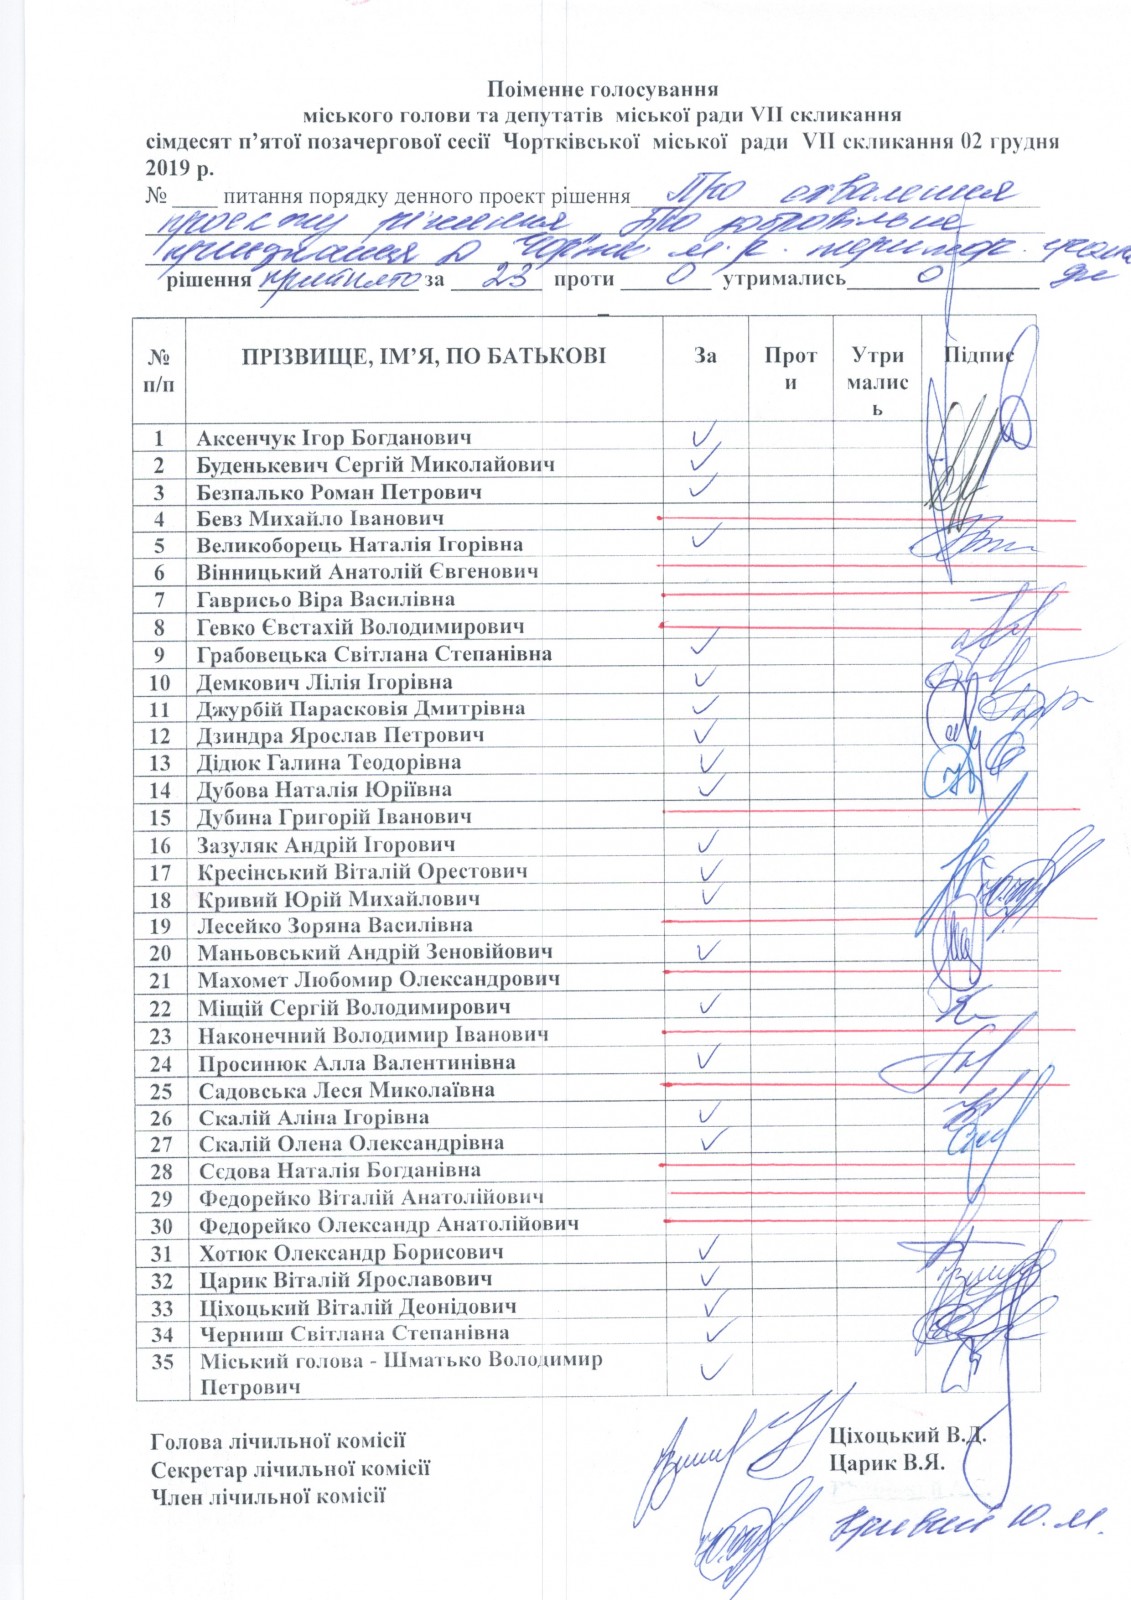 Поіменне голосування
міського голови та депутатів міської ради VII скликання
сімдесят п’ятої позачергової сесії Чортківської міської ради VII скликання 02 грудня
2019 р.
№ ____ питання порядку денного проект рішення Про схвалення
проекту рішення Про добровільне
приєднання до Чортк. м. р. територ. грома
ди
рішення прийнято за 23 проти 0 утримались 0
№ п/п ПРІЗВИЩЕ, ІМ’Я, ПО БАТЬКОВІ За Проти Утрималися Підпис
1 Аксенчук Ігор Богданович ✓
2 Буденькевич Сергій Миколайович ✓
3 Безпалько Роман Петрович ✓
4 Бевз Михайло Іванович
5 Великоборець Наталія Ігорівна ✓
6 Вінницький Анатолій Євгенович
7 Гаврисьо Віра Василівна
8 Гевко Євстахій Володимирович
9 Грабовецька Світлана Степанівна ✓
10 Демкович Лілія Ігорівна ✓
11 Джурбій Парасковія Дмитрівна ✓
12 Дзиндра Ярослав Петрович ✓
13 Дідюк Галина Теодорівна ✓
14 Дубова Наталія Юріївна ✓
15 Дубина Григорій Іванович
16 Зазуляк Андрій Ігорович ✓
17 Кресінський Віталій Орестович ✓
18 Кривий Юрій Михайлович ✓
19 Лесейко Зоряна Василівна
20 Маньовський Андрій Зеновійович ✓
21 Махомет Любомир Олександрович
22 Міщій Сергій Володимирович ✓
23 Наконечний Володимир Іванович
24 Просинюк Алла Валентинівна ✓
25 Садовська Леся Миколаївна
26 Скалій Аліна Ігорівна ✓
27 Скалій Олена Олександрівна ✓
28 Сєдова Наталія Богданівна
29 Федорейко Віталій Анатолійович
30 Федорейко Олександр Анатолійович
31 Хотюк Олександр Борисович ✓
32 Царик Віталій Ярославович ✓
33 Ціхоцький Віталій Деонідович ✓
34 Черниш Світлана Степанівна ✓
35 Міський голова - Шматько Володимир
Петрович ✓
Голова лічильної комісії Ціхоцький В.Д.
Секретар лічильної комісії Царик В.Я.
Член лічильної комісії
Кривий Ю.М.